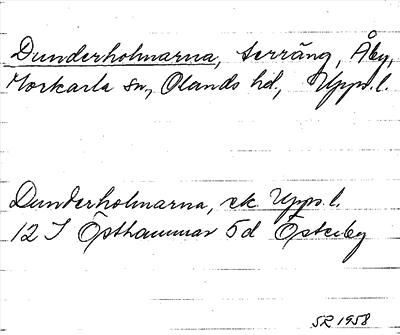 Dunderholmarna, terräng, Åby,
Morkarla sn, Olands hd, Upps. l.
Dunderholmarna, ek Upps. l.
12 I Östhammar 5d Österby
SR 1958